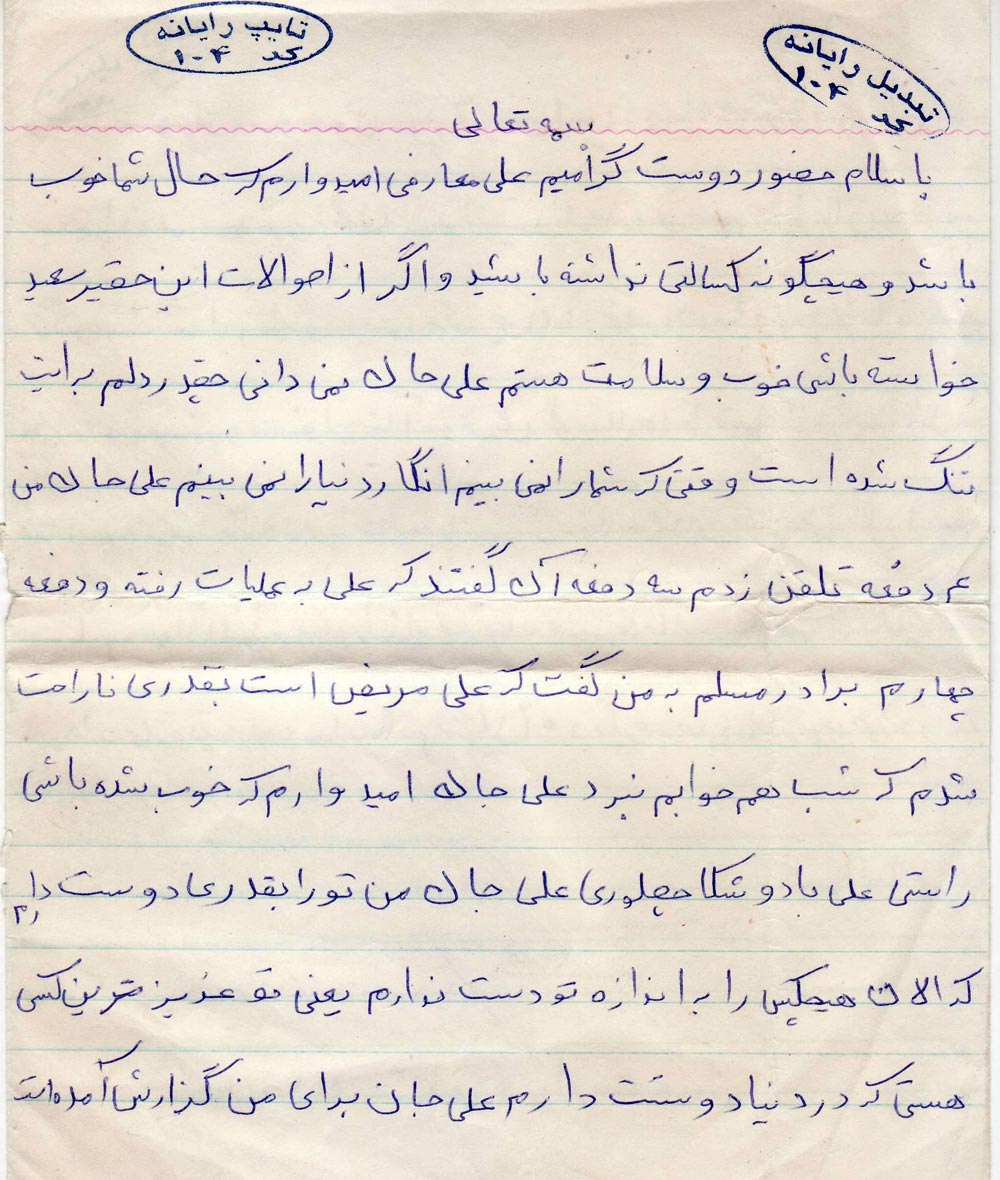 تایپ رایانه
کد ۱۰۴
تبدیل رایانه
کد ۱۰۴
بسمه تعالی
با سلام حضور دوست گرامیم علی معارفی امیدوارم که حال شما خوب
باشد و هیچگونه کسالتی نداشته باشید و اگر از احوالات این حقیر سعید
خواسته باشی خوب و سلامت هستم علی جان نمی دانی چقدر دلم برایت
تنگ شده است وقتی که شما را نمی بینم انگار دنیا را نمی بینم علی جان من
۴ دفعه تلفن زدم سه دفعه آن گفتند که علی به عملیات رفته و دفعه
چهارم برادر مسلم به من گفت که علی مریض است بقدری ناراحت
شدم که شب هم خوابم نبرد علی جان امیدوارم که خوب شده باشی
راستی علی با دوشکا چطوری علی جان من تو را بقدری دوست دارم
که الان هیچکس را به اندازه تو دست ندارم یعنی تو عزیز ترین کسی
هستی که در دنیا دوست دارم علی جان برای من گزارش آمده است